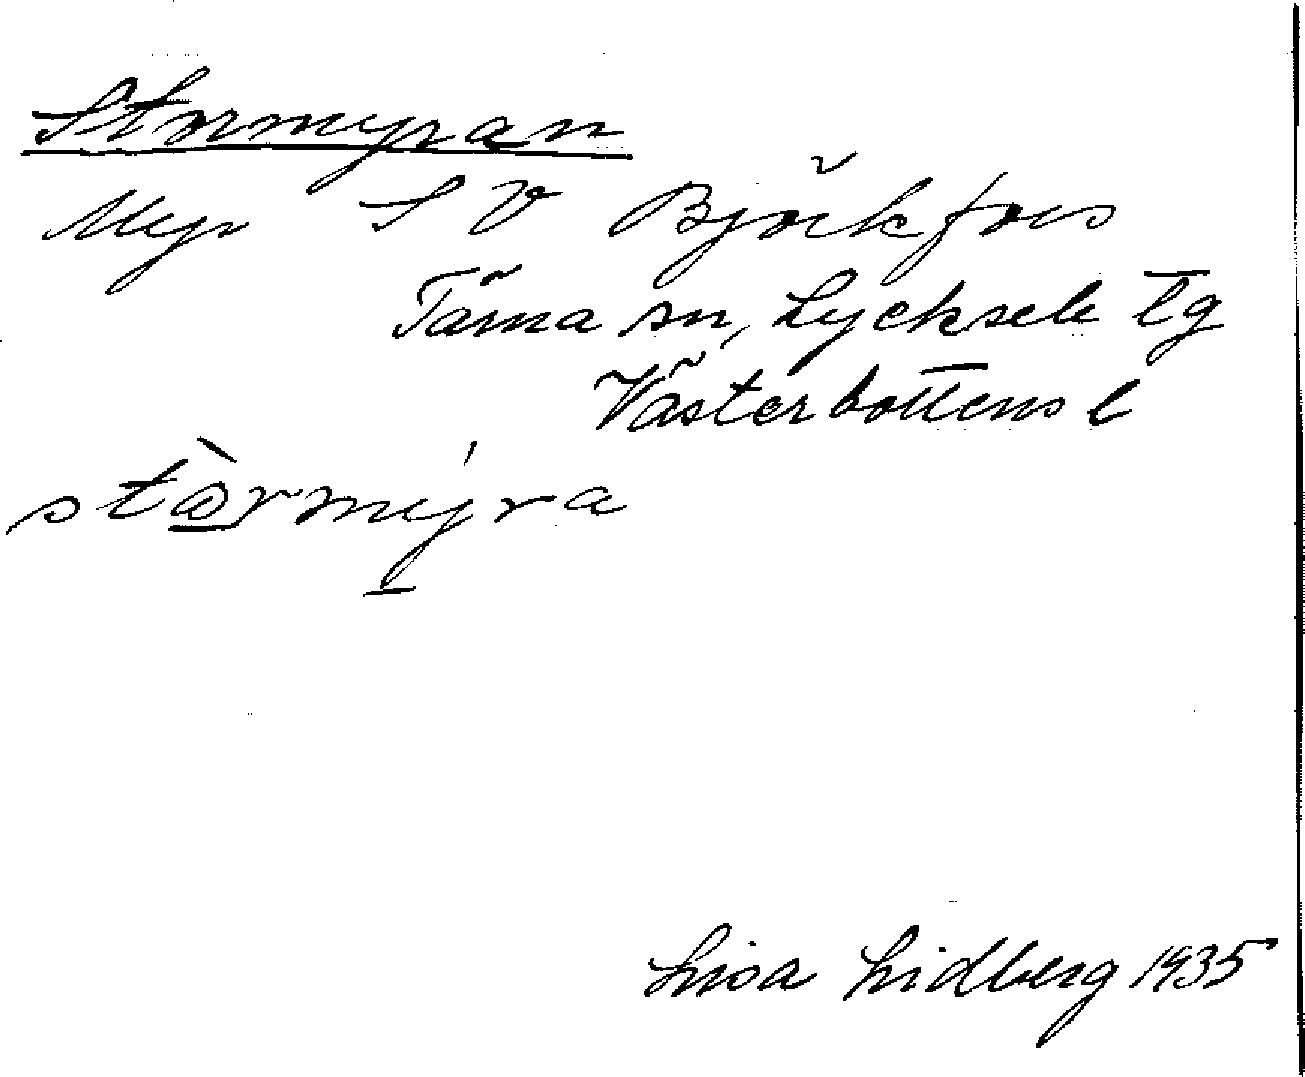 Stormyran
Myr S V Björkfors
Tärna sn, Lycksele lg
Västerbottens l
stòrmýra
Lisa Lidberg 1935